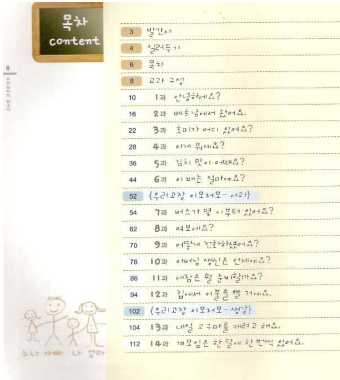 목차
content
6
3 발간사
4 일러두기
6 목차
8 교과 구성
10 1과 안녕하세요?
16 2과 베트남에서 왔어요.
22 3과 호미가 어디 있어요?
28 4과 이게 뭐예요?
36 5과 김치 맛이 어때요?
44 6과 이 배는 얼마예요?
52 〈우리고장 이모저모-
54 7과 버스가 몇 시부터 있어요?
62 8과 여보세요?
70 9과 어떻게
78 10과 아버님 생신은 언제예요?
86 11과 새참은 뭘 준비할까요?
94 12과 집에서 이불을 빨 거예요.
102 〈우리고장 이모저모-
104 13과 내일 고구마를 캐려고 해요.
112 14과 계모임은 한 달에 한 번씩 있어요.
누나 아빠 나 엄마